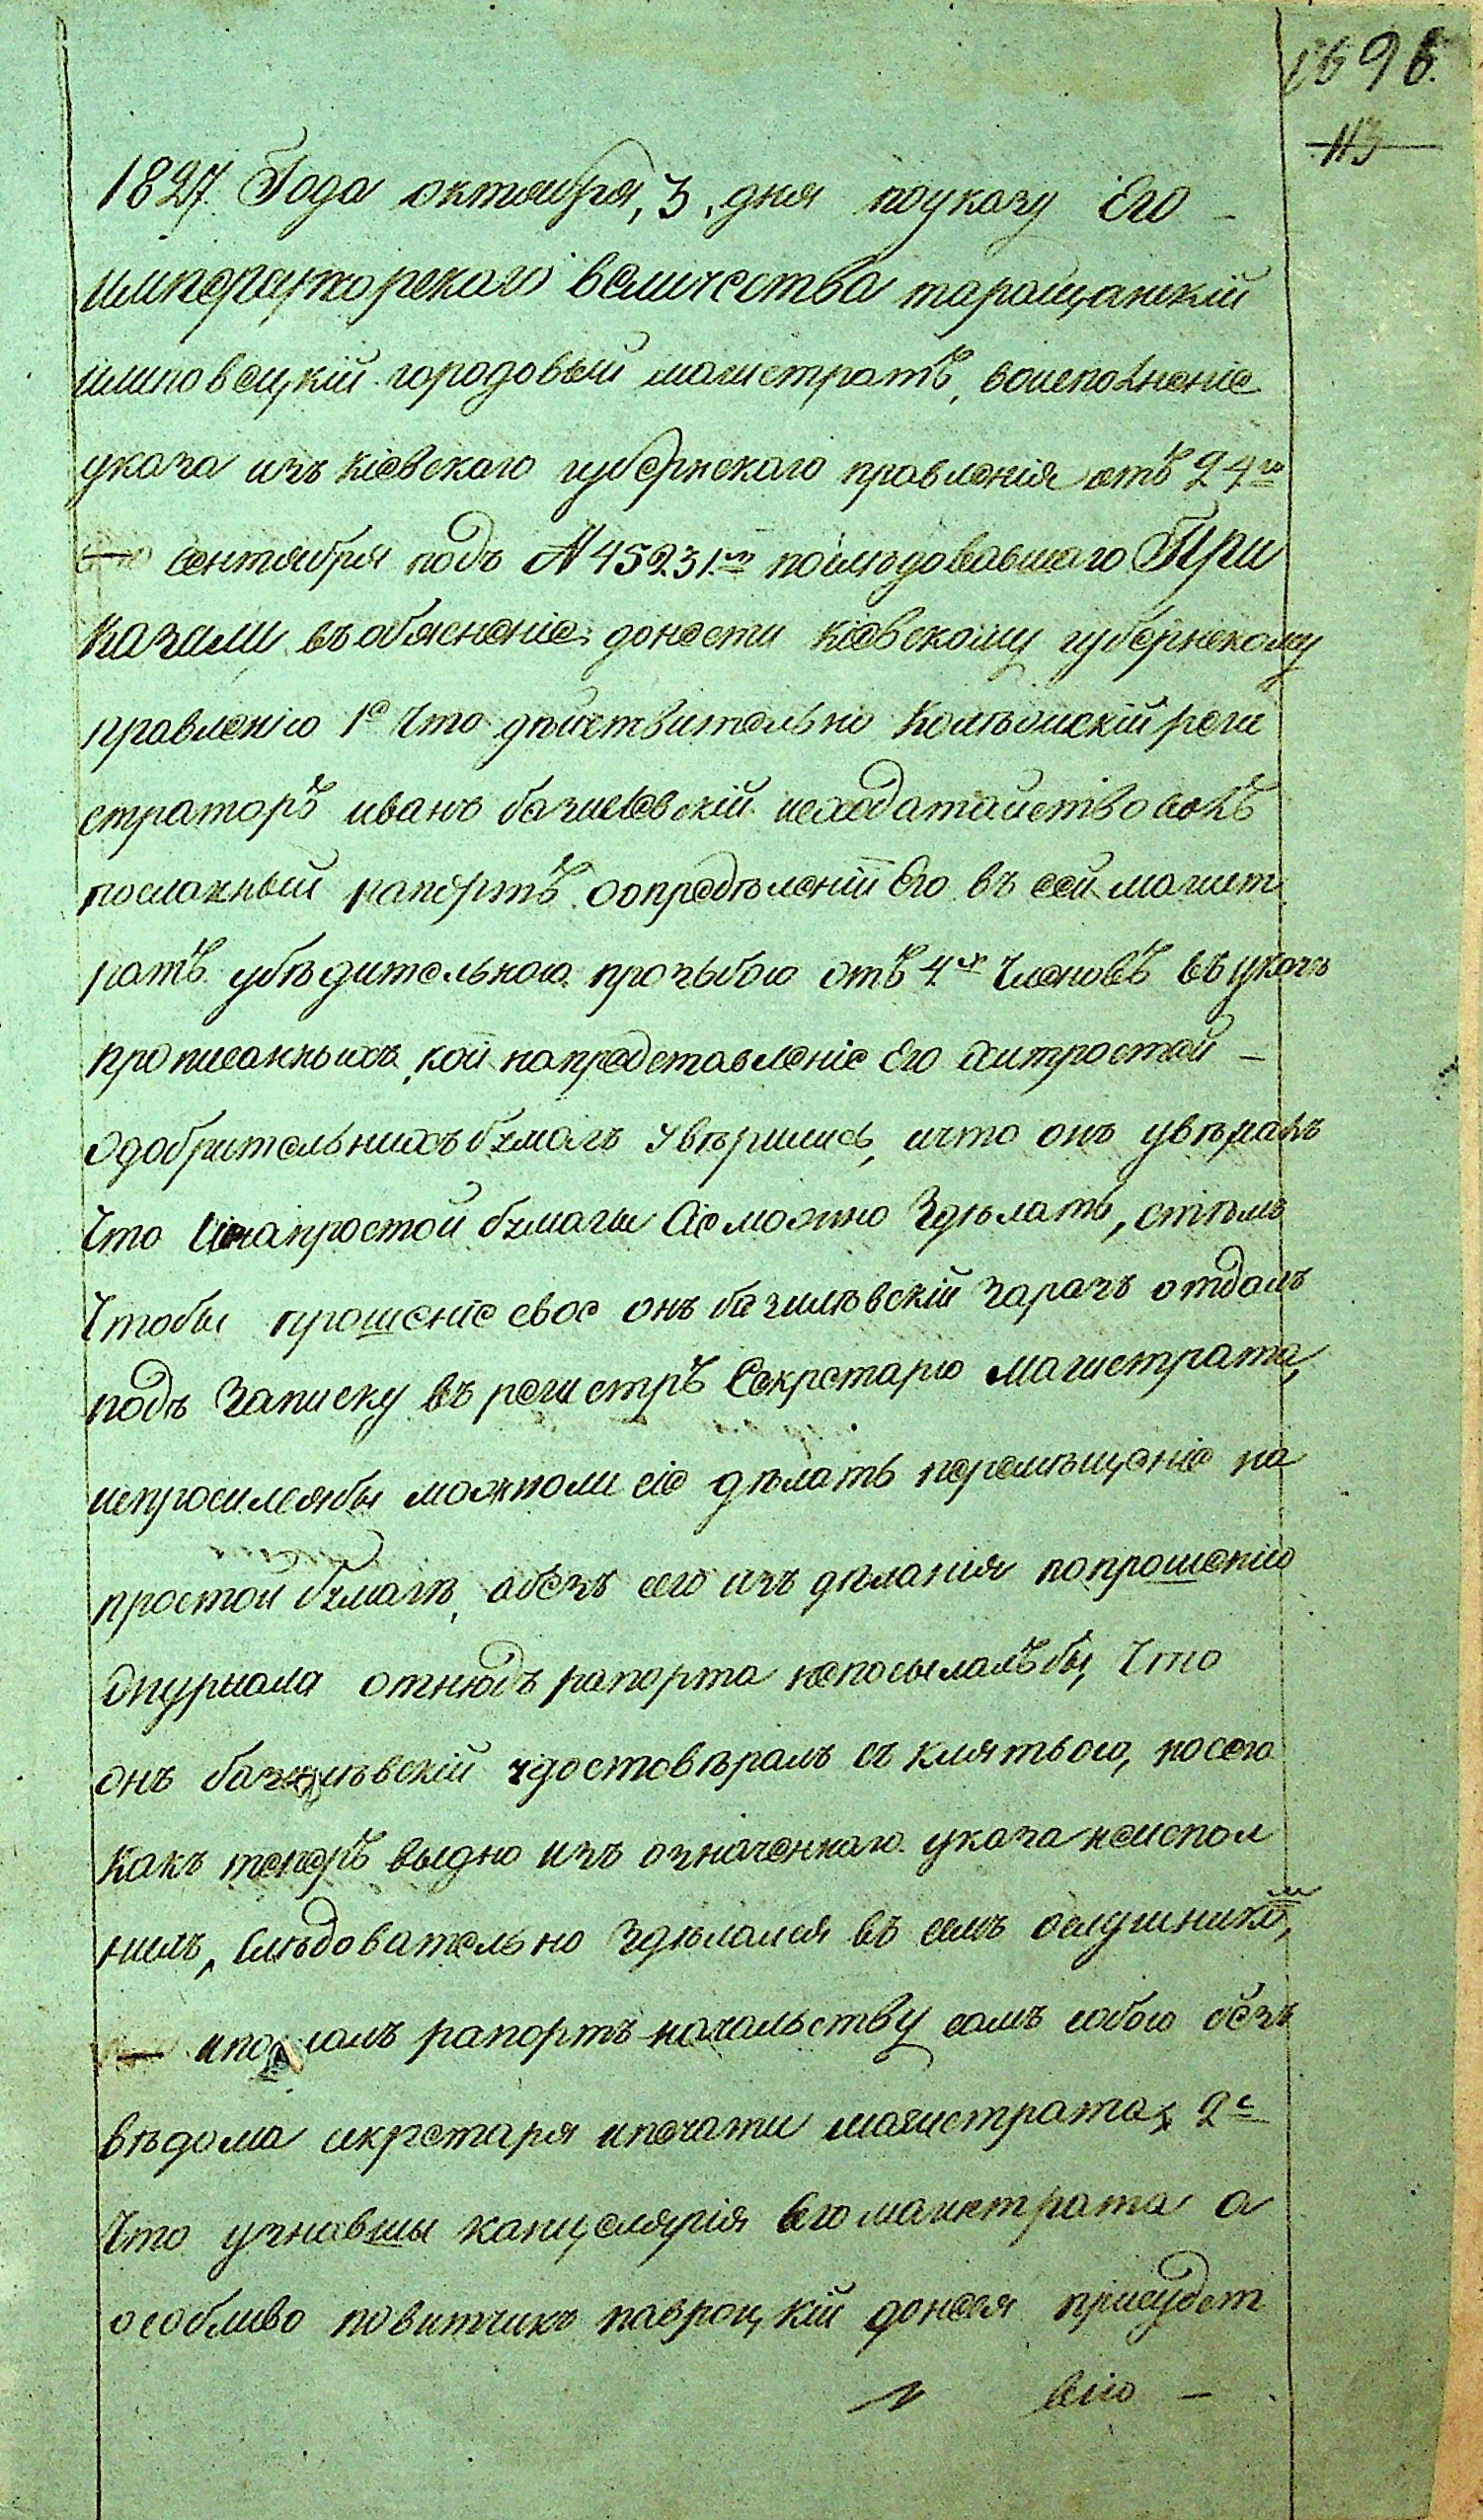 1696.
113
1827. Года октября, 3, дня поуказу Его –
императорского величества таращанскій
илиповецкій городовый магистратъ, воисполненіе
указа изъ кіевского губернского правленія отъ 24го
сентября подъ № 45231м послѣдовавшаго При
казали въ обясненіе донести кіевскому губернскому
правленію 1е Что дѣйствително Колѣжскій реги
страторъ иванъ базилевскій исходатайствовалъ
посланный рапортъ оопредѣленіи Его въ сей магист
ратъ убѣдителною прозьбою отъ 4х Членовъ въ указѣ
прописанныхъ, кои напредставленіе Его хитростей –
одобрителнихъ бумагъ увѣрились, ичто онъ увѣралъ
Что инапростой бумаги Сіе можно Здѣлать, стѣмъ
Чтобы прошеніе свое онъ базилѣвскій заразъ отдалъ
подъ Записку въ регистръ Секретарю Магистрата,
испросилсябы можноли сіе дѣлать перемѣщеніе на
простой бумагѣ, абезъ сего изъ дѣланія попрошенію
Журнала отнюдъ рапорта непосылалъбы, Что
онъ базилѣвскій удостовѣралъ съ клятвою, носего
Какъ теперъ выдно изъ означенного указа неиспол
нилъ, Слѣдователно Здѣлался въ семъ ослушникомъ,
ипослалъ рапортъ начальству самъ собою безъ
вѣдома сикретаря ипечати магистрата, 2е
Что узнавшы канцелярія Сего магистрата а
особливо повитчикъ навроцкій донося присудст
вію –